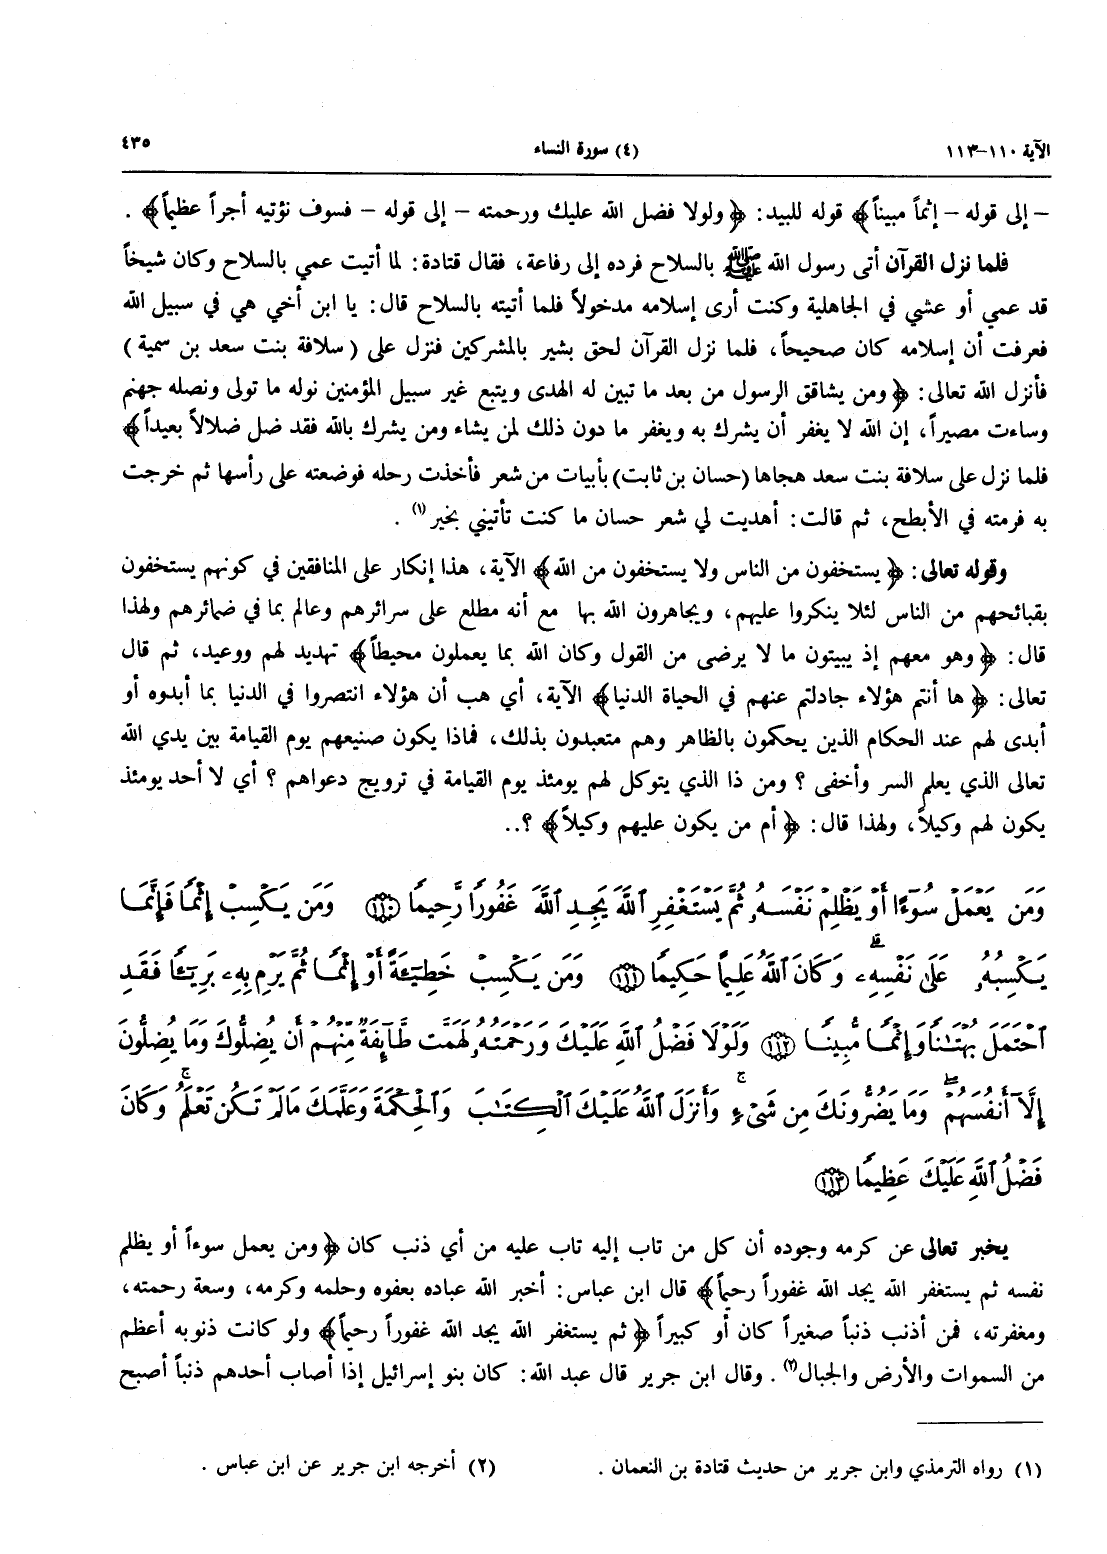 الآية ١١٠-١١٣ (٤) سورة النساء ٤٣٥
- إلى قوله - إثماً مبيناً﴾ قوله للبيد: ﴿ولولا فضل الله عليك ورحمته - إلى قوله - فسوف نؤتيه أجراً عظيماً﴾ .
فلما نزل القرآن أتى رسول الله ﷺ بالسلاح فرده إلى رفاعة، فقال قتادة: لما أتيت عمي بالسلاح وكان شيخاً
قد عمي أو عشي في الجاهلية وكنت أرى إسلامه مدخولاً فلما أتيته بالسلاح قال: يا ابن أخي هي في سبيل الله
فعرفت أن إسلامه كان صحيحاً، فلما نزل القرآن لحق بشير بالمشركين فنزل على (سلافة بنت سعد بن سمية)
فأنزل الله تعالى: ﴿ومن يشاقق الرسول من بعد ما تبين له الهدى ويتبع غير سبيل المؤمنين نوله ما تولى ونصله جهنم
وساءت مصيراً، إن الله لا يغفر أن يشرك به ويغفر ما دون ذلك لمن يشاء ومن يشرك بالله فقد ضل ضلالاً بعيداً﴾
فلما نزل على سلافة بنت سعد هجاها (حسان بن ثابت) بأبيات من شعر فأخذت رحله فوضعته على رأسها ثم خرجت
به فرمته في الأبطح، ثم قالت: أهديت لي شعر حسان ما كنت تأتيني بخير(١) .
وقوله تعالى: ﴿يستخفون من الناس ولا يستخفون من الله﴾ الآية، هذا إنكار على المنافقين في كونهم يستخفون
بقبائحهم من الناس لئلا ينكروا عليهم، ويجاهرون الله بها مع أنه مطلع على سرائرهم وعالم بما في ضمائرهم ولهذا
قال: ﴿وهو معهم إذ يبيتون ما لا يرضى من القول وكان الله بما يعملون محيطاً﴾ تهديد لهم ووعيد، ثم قال
تعالى: ﴿ها أنتم هؤلاء جادلتم عنهم في الحياة الدنيا﴾ الآية، أي هب أن هؤلاء انتصروا في الدنيا بما أبدوه أو
أبدى لهم عند الحكام الذين يحكمون بالظاهر وهم متعبدون بذلك، فماذا يكون صنيعهم يوم القيامة بين يدي الله
تعالى الذي يعلم السر وأخفى ؟ ومن ذا الذي يتوكل لهم يومئذ يوم القيامة في ترويج دعواهم ؟ أي لا أحد يومئذ
يكون لهم وكيلاً، ولهذا قال: ﴿أم من يكون عليهم وكيلاً﴾ ؟..
وَمَن يَعْمَلْ سُوٓءًا أَوْ يَظْلِمْ نَفْسَهُۥ ثُمَّ يَسْتَغْفِرِ ٱللَّهَ يَجِدِ ٱللَّهَ غَفُورًا رَّحِيمًا ١١٠ وَمَن يَكْسِبْ إِثْمًا فَإِنَّمَا
يَكْسِبُهُۥ عَلَىٰ نَفْسِهِۦ ۚ وَكَانَ ٱللَّهُ عَلِيمًا حَكِيمًا ١١١ وَمَن يَكْسِبْ خَطِيٓـَٔةً أَوْ إِثْمًا ثُمَّ يَرْمِ بِهِۦ بَرِيٓـًٔا فَقَدِ
ٱحْتَمَلَ بُهْتَـٰنًا وَإِثْمًا مُّبِينًا ١١٢ وَلَوْلَا فَضْلُ ٱللَّهِ عَلَيْكَ وَرَحْمَتُهُۥ لَهَمَّت طَّآئِفَةٌ مِّنْهُمْ أَن يُضِلُّوكَ وَمَا يُضِلُّونَ
إِلَّآ أَنفُسَهُمْ ۖ وَمَا يَضُرُّونَكَ مِن شَىْءٍ ۚ وَأَنزَلَ ٱللَّهُ عَلَيْكَ ٱلْكِتَـٰبَ وَٱلْحِكْمَةَ وَعَلَّمَكَ مَا لَمْ تَكُن تَعْلَمُ ۚ وَكَانَ
فَضْلُ ٱللَّهِ عَلَيْكَ عَظِيمًا ١١٣
يخبر تعالى عن كرمه وجوده أن كل من تاب إليه تاب عليه من أي ذنب كان ﴿ومن يعمل سوءاً أو يظلم
نفسه ثم يستغفر الله يجد الله غفوراً رحيماً﴾ قال ابن عباس: أخبر الله عباده بعفوه وحلمه وكرمه، وسعة رحمته،
ومغفرته، فمن أذنب ذنباً صغيراً كان أو كبيراً ﴿ثم يستغفر الله يجد الله غفوراً رحيماً﴾ ولو كانت ذنوبه أعظم
من السموات والأرض والجبال(٢) . وقال ابن جرير قال عبد الله: كان بنو إسرائيل إذا أصاب أحدهم ذنباً أصبح
(١) رواه الترمذي وابن جرير من حديث قتادة بن النعمان . (٢) أخرجه ابن جرير عن ابن عباس .